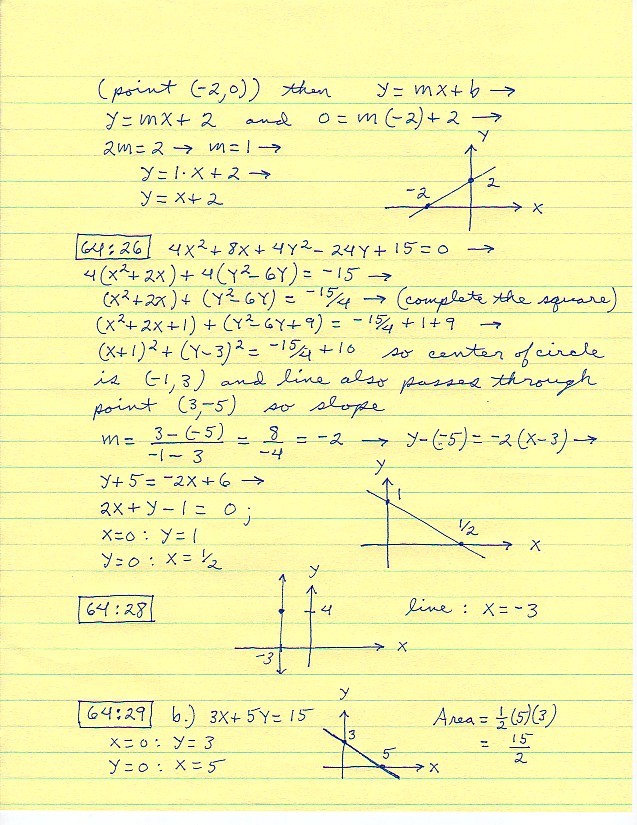 (point (-2,0)) then y = mx + b →
y = mx + 2 and 0 = m(-2) + 2 →
2m = 2 → m = 1 →
y = 1·x + 2 →
y = x + 2
Y
-2 2 X
64:26 4x² + 8x + 4y² - 24y + 15 = 0 →
4(x² + 2x) + 4(y² - 6y) = -15 →
(x² + 2x) + (y² - 6y) = -15/4 → (complete the square)
(x² + 2x + 1) + (y² - 6y + 9) = -15/4 + 1 + 9 →
(x+1)² + (y-3)² = -15/4 + 10 so center of circle
is (-1,3) and line also passes through
point (3,-5) so slope
m = (3-(-5))/(-1-3) = 8/-4 = -2 → y-(-5) = -2(x-3) →
y + 5 = -2x + 6 →
2x + y - 1 = 0 ;
x=0 : y=1
y=0 : x=1/2
Y
1
1/2
X
64:28
Y
4
-3
X
line : x = -3
64:29 b.) 3x + 5y = 15
x=0 : y=3
y=0 : x=5
Y
3
5
X
Area = 1/2 (5)(3)
= 15/2